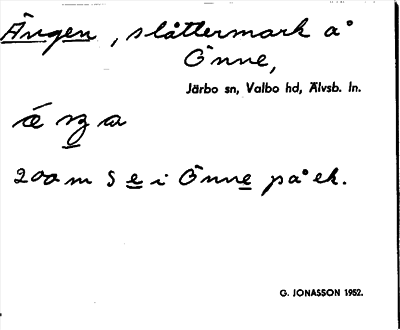 Ängen, slåttermark å
Önne,
Järbo sn, Valbo hd, Älvsb. ln.
200 m S e i Önne på ek.
G. JONASSON 1952.